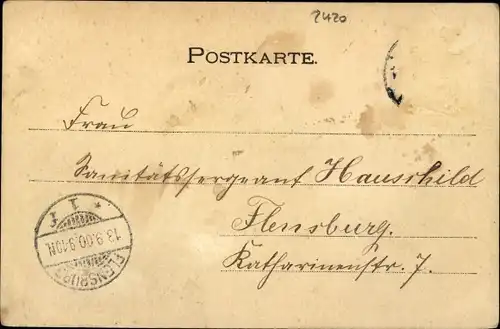 2420
POSTKARTE.
Frau
Sanitätssergeant Hauschild
Flensburg.
Katharinenstr. 7.
* 1 f
13.9.00.9-10N.
FLENSBURG